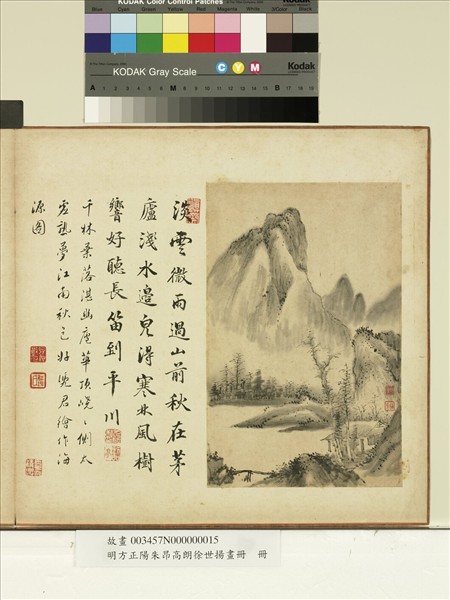 KODAK Color Control Patches
Kodak
Blue Cyan Green Yellow Red Magenta White 3/Color Black
KODAK Gray Scale
C Y M
Kodak
A 1 2 3 4 5 6 M 8 9 10 11 12 13 14 15 B 17 18 19
淡雲微雨過山前秋在茅
廬淺水邊兒得寒林風樹
響好聽長笛到平川
千林葉落湛幽 華頂 側太
虛 夢江南秋 好 君繪作海
源圖
故畫 003457N000000015
明方正陽朱昂高朗徐世揚畫冊 冊